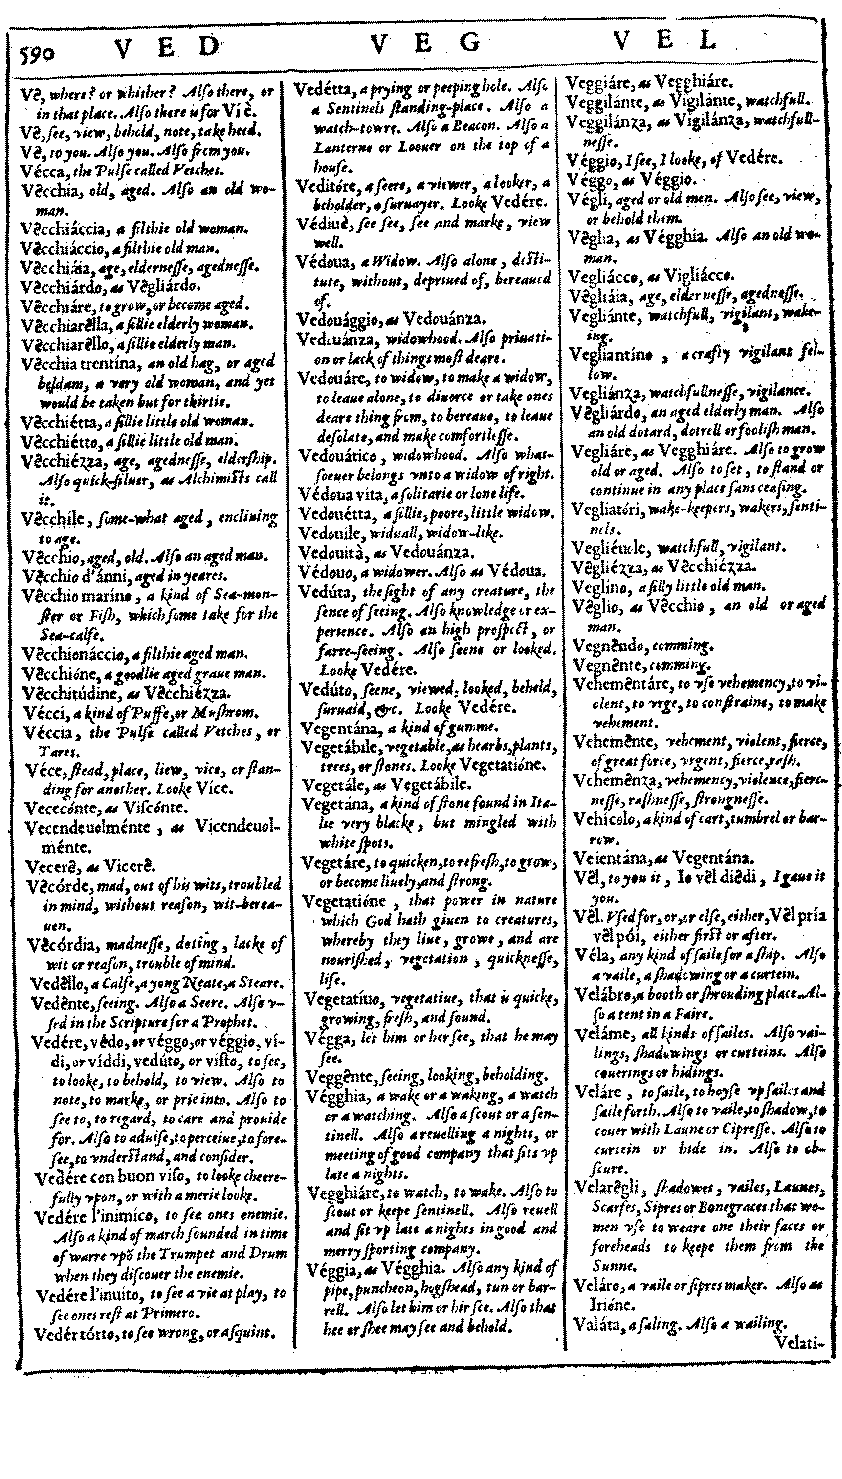 590 VED VEG VEL
Vê, where? or whither? Also there, or
in that place. Also there is for Vi è.
Vê, see, view, behold, note, take heed.
Vê, to you. Also you. Also from you.
Vécca, the Pulse called Vetches.
Vêcchia, old, aged. Also an old wo-
man.
Vêcchiáccia, a filthie old woman.
Vêcchiáccio, a filthie old man.
Vêcchiáia, age, eldernesse, agednesse.
Vêcchiárdo, as Vêgliárdo.
Vêcchiáre, to grow, or become aged.
Vêcchiarêlla, a sillie elderly woman.
Vêcchiarêllo, a sillie elderly man.
Vêcchia trentína, an old hag, or aged
beldam, a very old woman, and yet
would be taken but for thirtie.
Vêcchiétta, a sillie little old woman.
Vêcchiétto, a sillie little old man.
Vêcchiézza, age, agednesse, eldership.
Also quick-siluer, as Alchimists call
it.
Vêcchíle, some-what aged, enclining
to age.
Vêcchio, aged, old. Also an aged man.
Vêcchio d'ánni, aged in yeares.
Vêcchio maríno, a kind of Sea-mon-
ster or Fish, which some take for the
Sea-calfe.
Vêcchionáccio, a filthie aged man.
Vêcchióne, a goodlie aged graue man.
Vêcchitúdine, as Vêcchiézza.
Vécci, a kind of Puffe, or Mushrom.
Véccia, the Pulse called Vetches, or
Tares.
Véce, stead, place, liew, vice, or stan-
ding for another. Looke Více.
Vececónte, as Viscónte.
Vecendeuolménte, as Vicendeuol-
ménte.
Vecerê, as Vicerê.
Vêcórde, mad, out of his wits, troubled
in mind, without reason, wit-berea-
uen.
Vêcórdia, madnesse, doting, lacke of
wit or reason, trouble of mind.
Vedêllo, a Calfe, a yong Neate, a Steare.
Vedênte, seeing. Also a Seere. Also v-
sed in the Scripture for a Prophet.
Vedére, vêdo, or véggo, or véggio, ví-
di, or víddi, vedúto, or vísto, to see,
to looke, to behold, to view. Also to
note, to marke, or prie into. Also to
see to, to regard, to care and prouide
for. Also to aduise, to perceiue, to fore-
see, to vnderstand, and consider.
Vedére con buon víso, to looke cheere-
fully vpon, or with a merie looke.
Vedére l'inimíco, to see ones enemie.
Also a kind of march sounded in time
of warre vpõ the Trumpet and Drum
when they discouer the enemie.
Vedére l'inuíto, to see a vie at play, to
see ones rest at Primero.
Vedér tórto, to see wrong, or asquint.
Vedétta, a prying or peeping hole. Also
a Sentinels standing-place. Also a
watch-towre. Also a Beacon. Also a
Lanterne or Loouer on the top of a
house.
Veditóre, a seere, a viewer, a looker, a
beholder, a suruayer. Looke Vedére.
Védiuê, see see, see and marke, view
well.
Védoua, a Widow. Also alone, desti-
tute, without, depriued of, bereaued
of.
Vedouággio, as Vedouánza.
Vedouánza, widowhood. Also priuati-
on or lack of things most deare.
Vedouáre, to widow, to make a widow,
to leaue alone, to diuorce or take ones
deare thing from, to bereaue, to leaue
desolate, and make comfortlesse.
Vedouático, widowhood. Also what-
soeuer belongs vnto a widow of right.
Védoua vita, a solitarie or lone life.
Vedouétta, a sillie, poore, little widow.
Vedouíle, widuall, widow-like.
Vedouità, as Vedouánza.
Védouo, a widower. Also as Védoua.
Vedúta, the sight of any creature, the
sence of seeing. Also knowledge or ex-
perience. Also an high prospect, or
farre-seeing. Also seene or looked.
Looke Vedére.
Vedúto, seene, viewed, looked, beheld,
suruaid, &c. Looke Vedére.
Vegentána, a kind of gumme.
Vegetábile, vegetable, as hearbs, plants,
trees, or stones. Looke Vegetatióne.
Vegetále, as Vegetábile.
Vegetána, a kind of stone found in Ita-
lie very blacke, but mingled with
white spots.
Vegetáre, to quicken, to refresh, to grow,
or become liuely, and strong.
Vegetatióne, that power in nature
which God hath giuen to creatures,
whereby they liue, growe, and are
nourished, vegetation, quicknesse,
life.
Vegetatíuo, vegetatiue, that is quicke,
growing, fresh, and sound.
Végga, let him or her see, that he may
see.
Veggênte, seeing, looking, beholding.
Végghia, a wake or a waking, a watch
or a watching. Also a scout or a sen-
tinell. Also a reuelling a nights, or
meeting of good company that sits vp
late a nights.
Vegghiáre, to watch, to wake. Also to
scout or keepe sentinell. Also reuell
and sit vp late a nights in good and
merry sporting company.
Véggia, as Végghia. Also any kind of
pipe, puncheon, hogshead, tun or bar-
rell. Also let him or hir see. Also that
hee or shee may see and behold.
Veggiáre, as Vegghiáre.
Veggilánte, as Vigilánte, watchfull.
Veggilánza, as Vigilánza, watchfull-
nesse.
Véggio, I see, I looke, of Vedére.
Véggo, as Véggio.
Végli, aged or old men. Also see, view,
or behold them.
Vêglia, as Végghia. Also an old wo-
man.
Vegliácco, as Vigliácco.
Vêgliáia, age, eldernesse, agednesse.
Vegliánte, watchfull, vigilant, wake-
ing.
Vegliantíno, a crafty vigilant fel-
low.
Vegliánza, watchfullnesse, vigilance.
Vêgliárdo, an aged elderly man. Also
an old dotard, dotrell or foolish man.
Vegliáre, as Vegghiáre. Also to grow
old or aged. Also to set, to stand or
continue in any place sans ceasing.
Vegliatóri, wake-keepers, wakers, senti-
nels.
Vegliéuole, watchfull, vigilant.
Vêgliézza, as Vêcchiézza.
Veglíno, a silly little old man.
Vêglio, as Vêcchio, an old or aged
man.
Vegnêndo, comming.
Vegnênte, comming.
Vehementáre, to vse vehemency, to vi-
olent, to vrge, to constraine, to make
vehement.
Vehemênte, vehement, violent, fierce,
of great force, vrgent, fierce, rash.
Vehemênza, vehemency, violence, fierce-
nesse, rashnesse, strongnesse.
Vehícolo, a kind of cart, tumbrel or bar-
row.
Veientána, as Vegentána.
Vêl, to you it, Io vêl diêdi, I gaue it
you.
Vêl. Vsed for, or, or else, either, Vêl pría
vêl pói, either first or after.
Véla, any kind of saile for a ship. Also
a vaile, a shadowing or a curtein.
Velábro, a booth or shrouding place. Al-
so a tent in a Faire.
Veláme, all kinds of sailes. Also vai-
lings, shadowings or curteins. Also
couerings or hidings.
Veláre, to saile, to hoyse vp sailes and
saile forth. Also to vaile, to shadow, to
couer with Laune or Cipresse. Also to
curtein or hide in. Also to ob-
scure.
Velarêgli, shadowes, vailes, Launes,
Scarfes, Sipres or Bonegraces that wo-
men vse to weare one their faces or
foreheads to keepe them from the
Sunne.
Veláro, a vaile or sipres maker. Also as
Irióne.
Valáta, a saling. Also a wailing.
Velati-